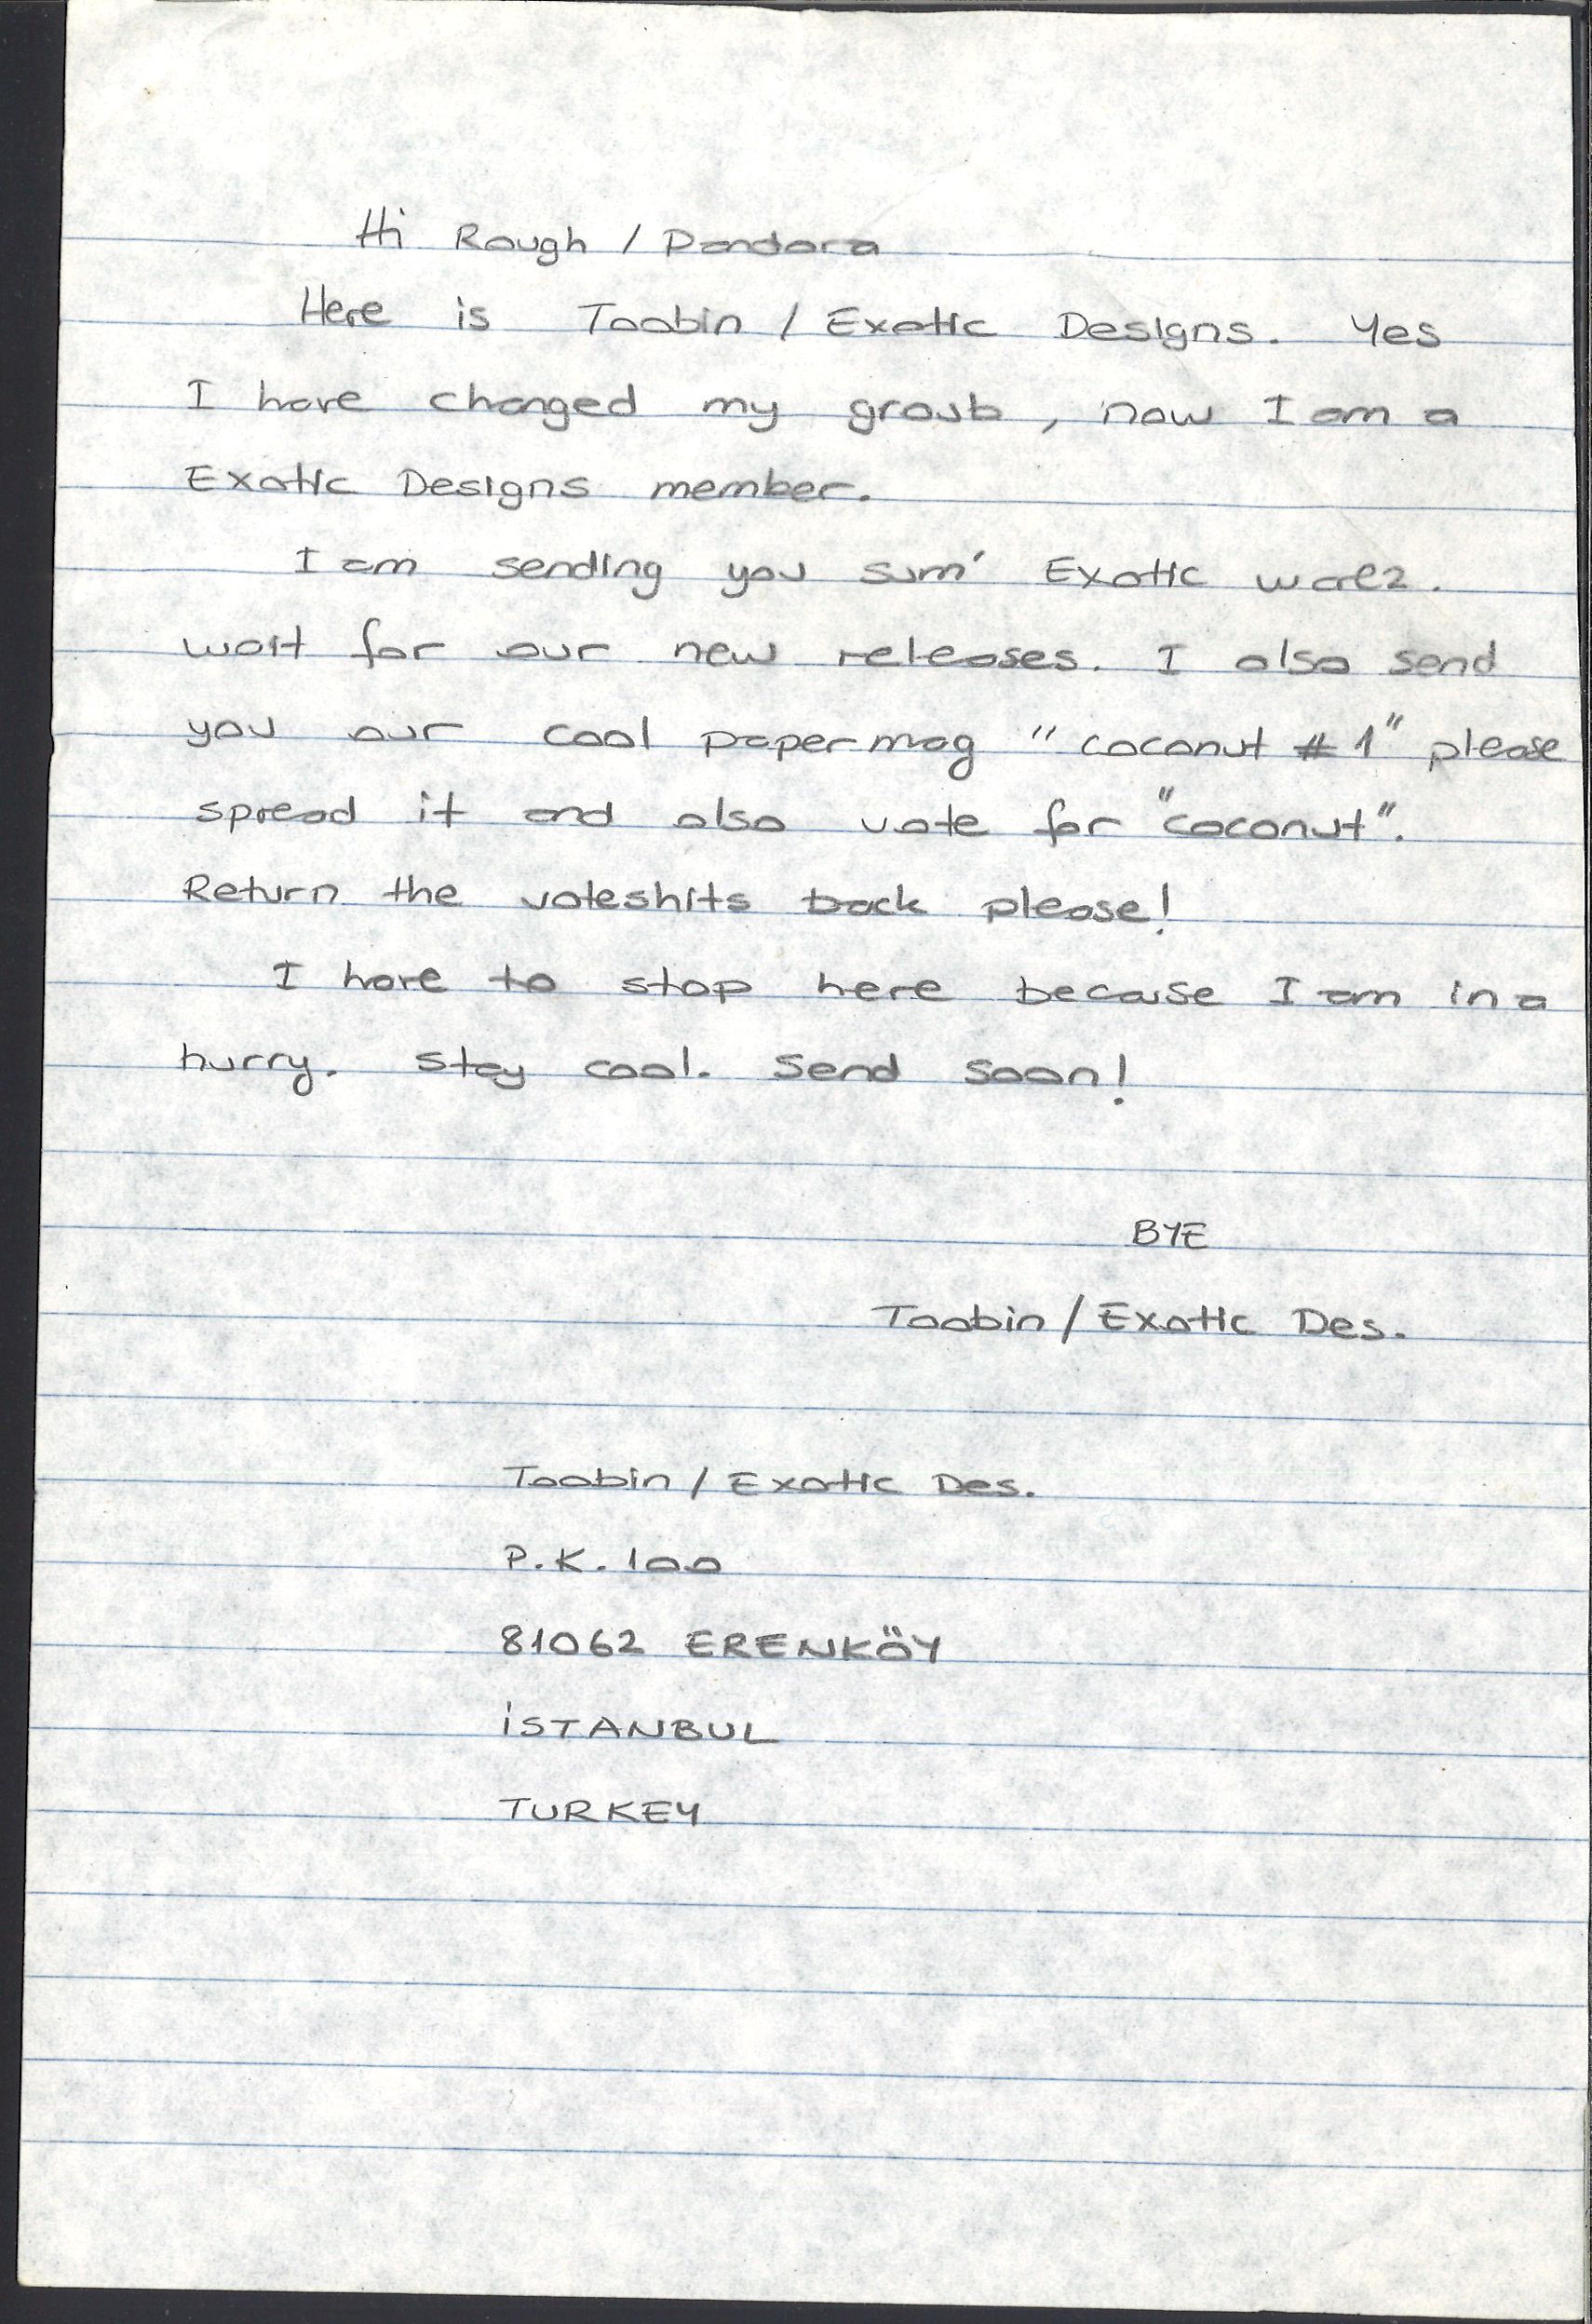 Hi Rough / Pandora
Here is Toobin / Exotic Designs. Yes
I have changed my groub, now I am a
Exotic Designs member.
I am sending you sum' Exotic warez.
wait for our new releases. I also send
you our cool papermag "coconut #1" please
spread it and also vote for "coconut".
Return the voteshits back please!
I have to stop here because I am in a
hurry. Stay cool. Send soon!
BYE
Toobin / Exotic Des.
Toobin / Exotic Des.
P.K. 100
81062 ERENKÖY
İSTANBUL
TURKEY